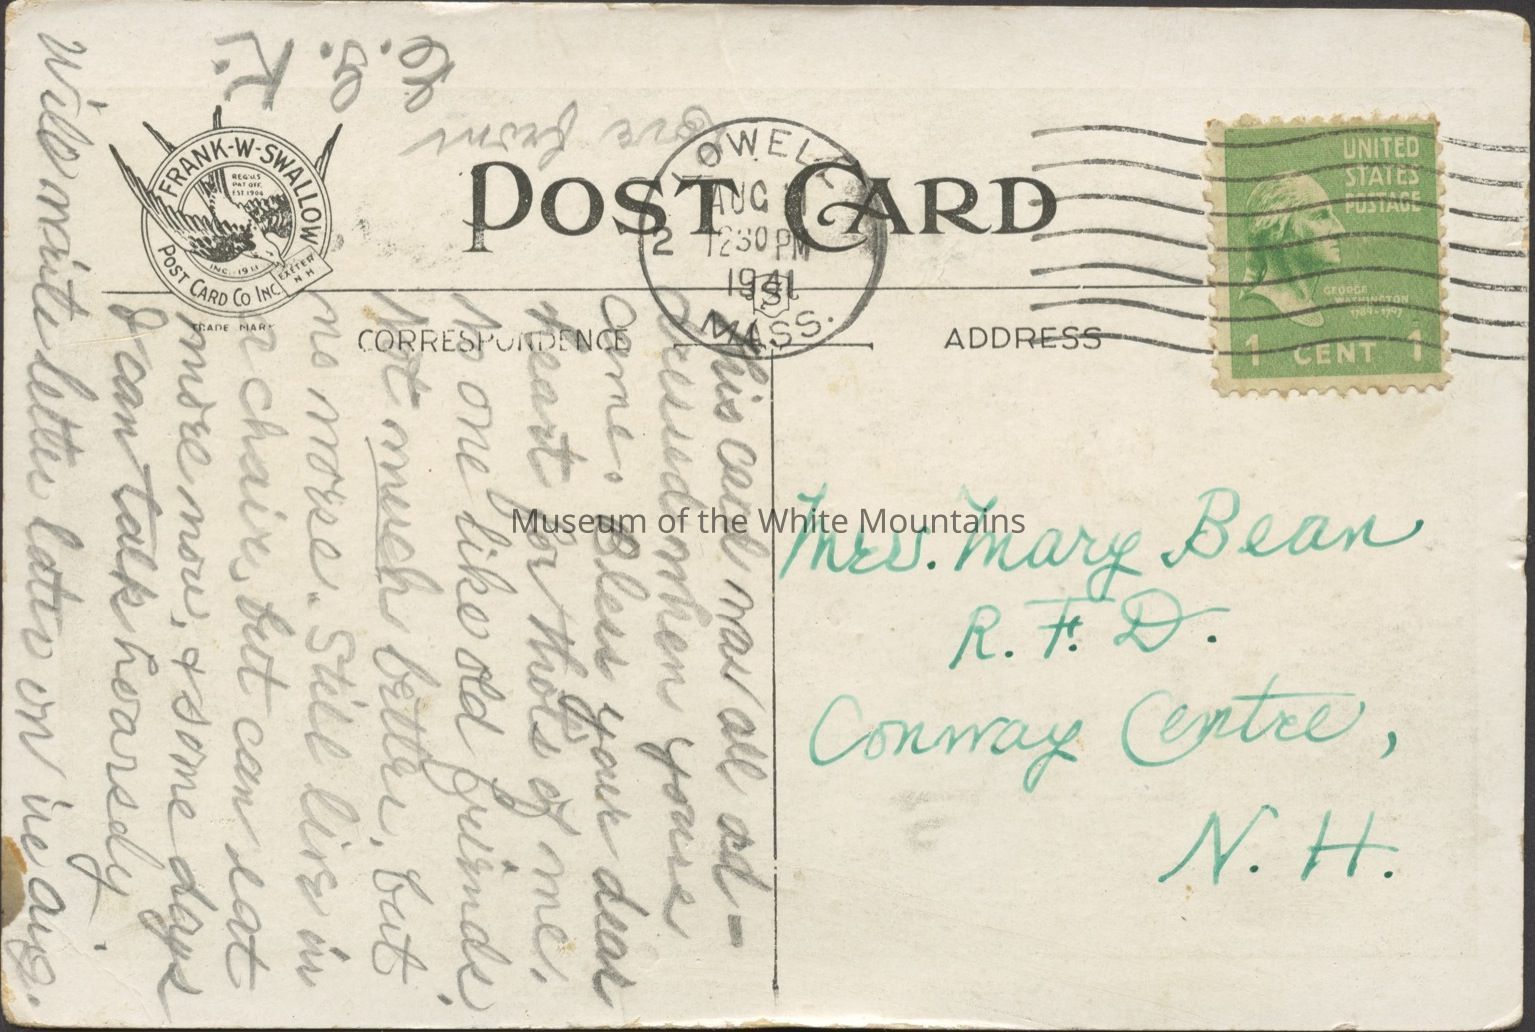 FRANK-W-SWALLOW
REG. U.S.
PAT OFF.
EST 1904
INC.-1911
EXETER
N H
POST CARD CO INC.
TRADE MARK
POST CARD
LOWELL
AUG
12 30 PM
1941
MASS.
2
UNITED
STATES
POSTAGE
GEORGE
WASHINGTON
1789-1797
1 CENT 1
CORRESPONDENCE
ADDRESS
Museum of the White Mountains
Mrs. Mary Bean
R. F. D.
Conway Centre,
N. H.
This card was all ad-
dressed when yours
came. Bless your dear
heart for tho'ts of me.
No one like old friends.
Not much better, but
no more. Still live in
a chair, but can eat
more now, & some days
I can talk hoarsely.
Will write letter later on in aug.
Love from
K.